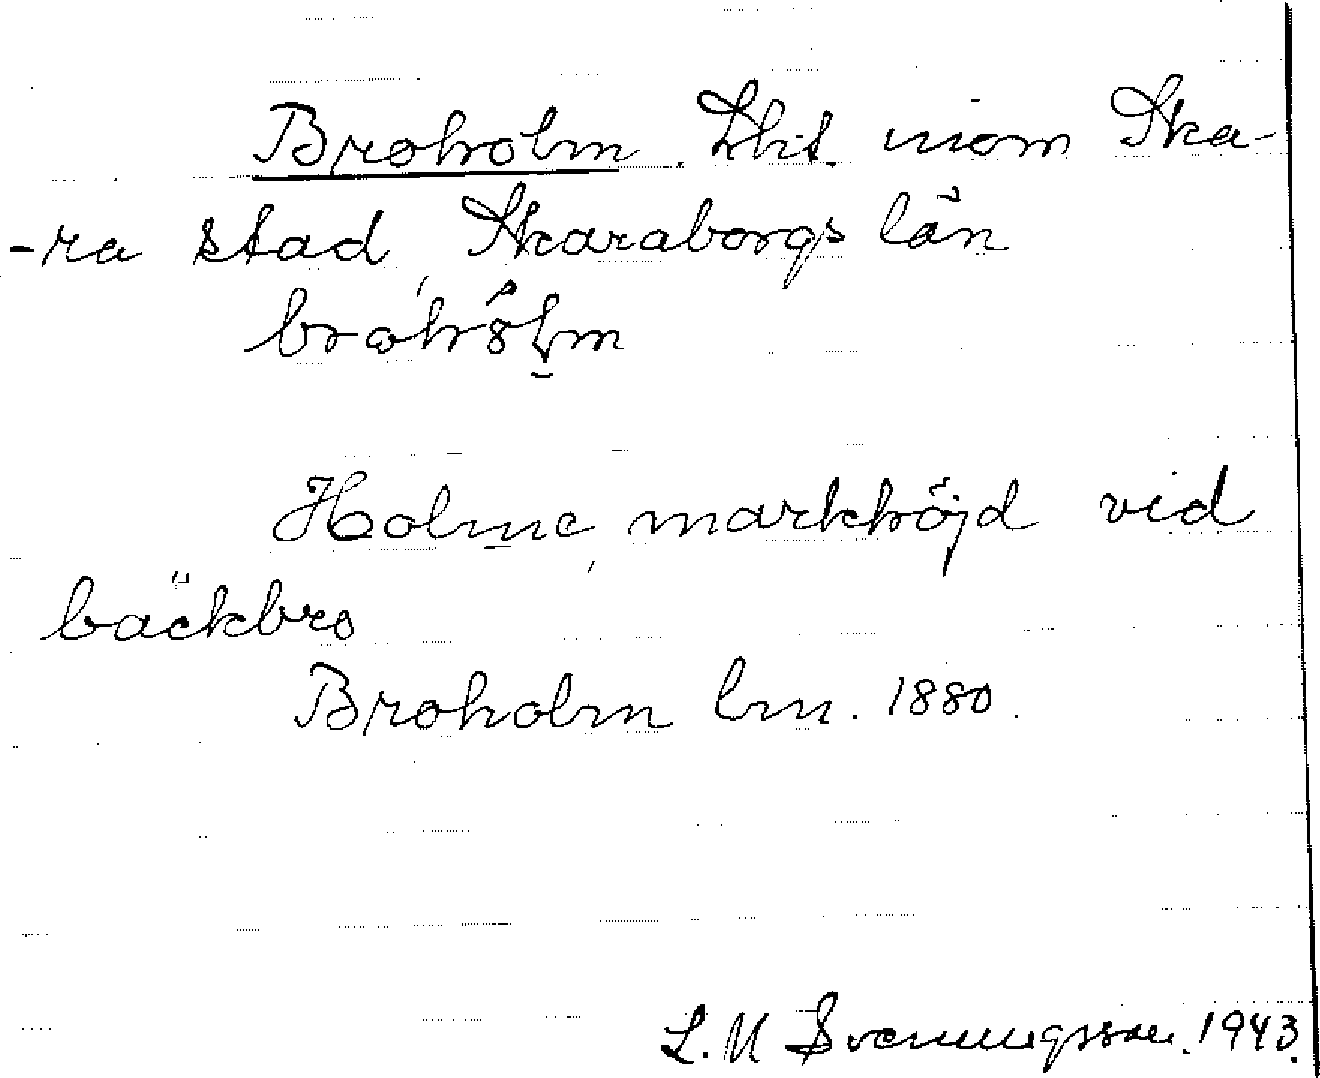 Broholm. Lht. inom Ska-
-ra stad, Skaraborgs län
Holme, markhöjd vid
bäckbro
Broholm lm. 1880.
L. M Svenningsson. 1943.